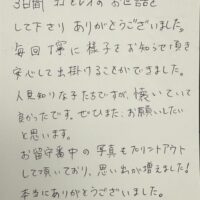 3日間 お世話を
して下さり ありがとうございました。
毎回丁寧に様子をお知らせ頂き
安心して出掛けることができました。
人見知りな子たちですが、懐いていて
良かったです。ぜひまた、お願いしたい
と思います。
お留守番中の写真もプリントアウト
して頂いており、思い出が増えました!
本当にありがとうございました。